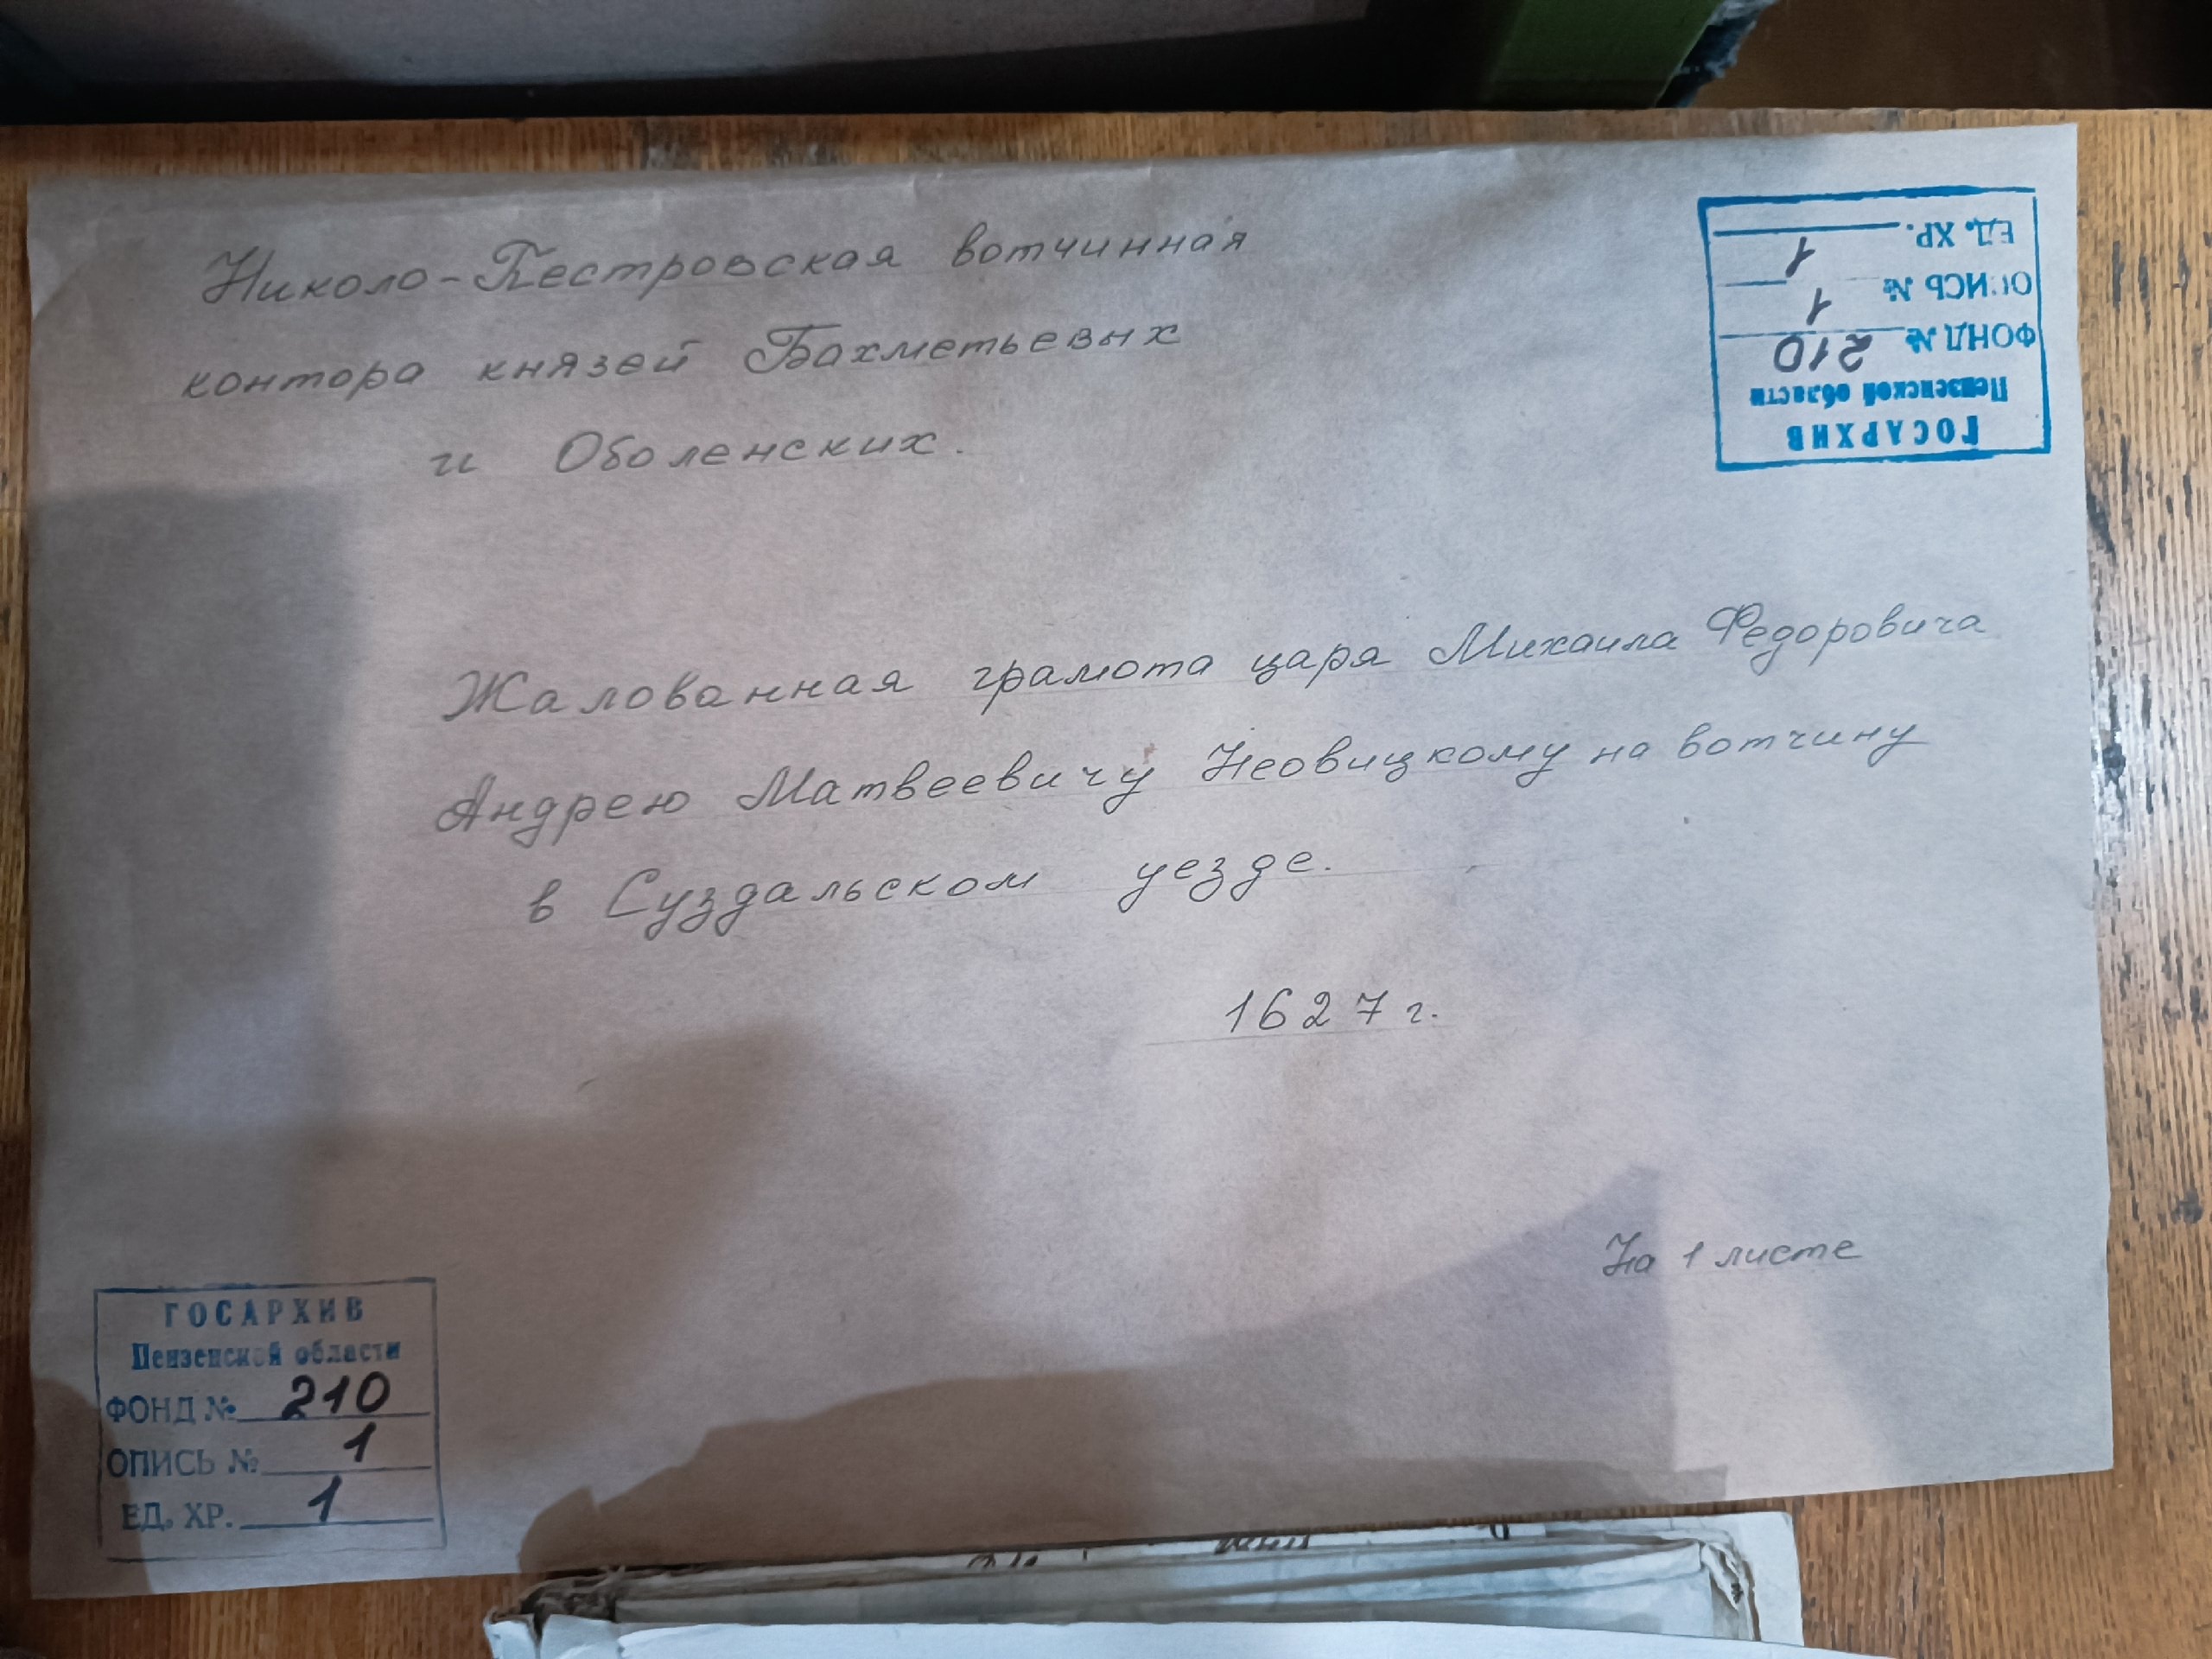 Николо-Пестровская вотчинная
контора князей Бахметьевых
и Оболенских.
ГОСАРХИВ
Пензенской области
ФОНД № 210
ОПИСЬ № 1
ЕД. ХР. 1
Жалованная грамота царя Михаила Федоровича
Андрею Матвеевичу Неовицкому на вотчину
в Суздальском уезде.
1627 г.
На 1 листе
ГОСАРХИВ
Пензенской области
ФОНД № 210
ОПИСЬ № 1
ЕД. ХР. 1